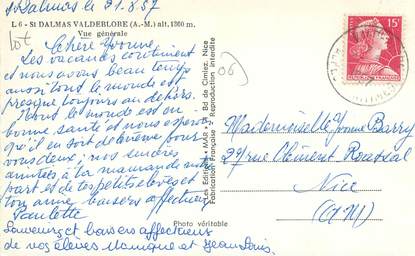 St Dalmas le 31.8.57
L 6 - St DALMAS VALDEBLORE (A.-M.) alt. 1300 m.
Vue générale
lot
Chère Yvonne,
Les vacances continuent
et nous avons beau temps
aussi tout le monde est
presque toujours au dehors.
Tout le monde est en
bonne santé et nous espérons
qu'il en soit de même pour
vous deux; nos sincères
amitiés à ta maman de notre
part et de tes petits élèves et
ton amie baisers affectueux
Paulette
Souvenirs et baisers affectueux
de vos élèves Monique et Jean Louis.
Photo véritable
Les Editions "MAR" Bd de Cimiez, Nice
Fabrication Française Reproduction interdite
06
15F
Mademoiselle Yvonne Barry
27 rue Clément Roassal
Nice
(A.M)